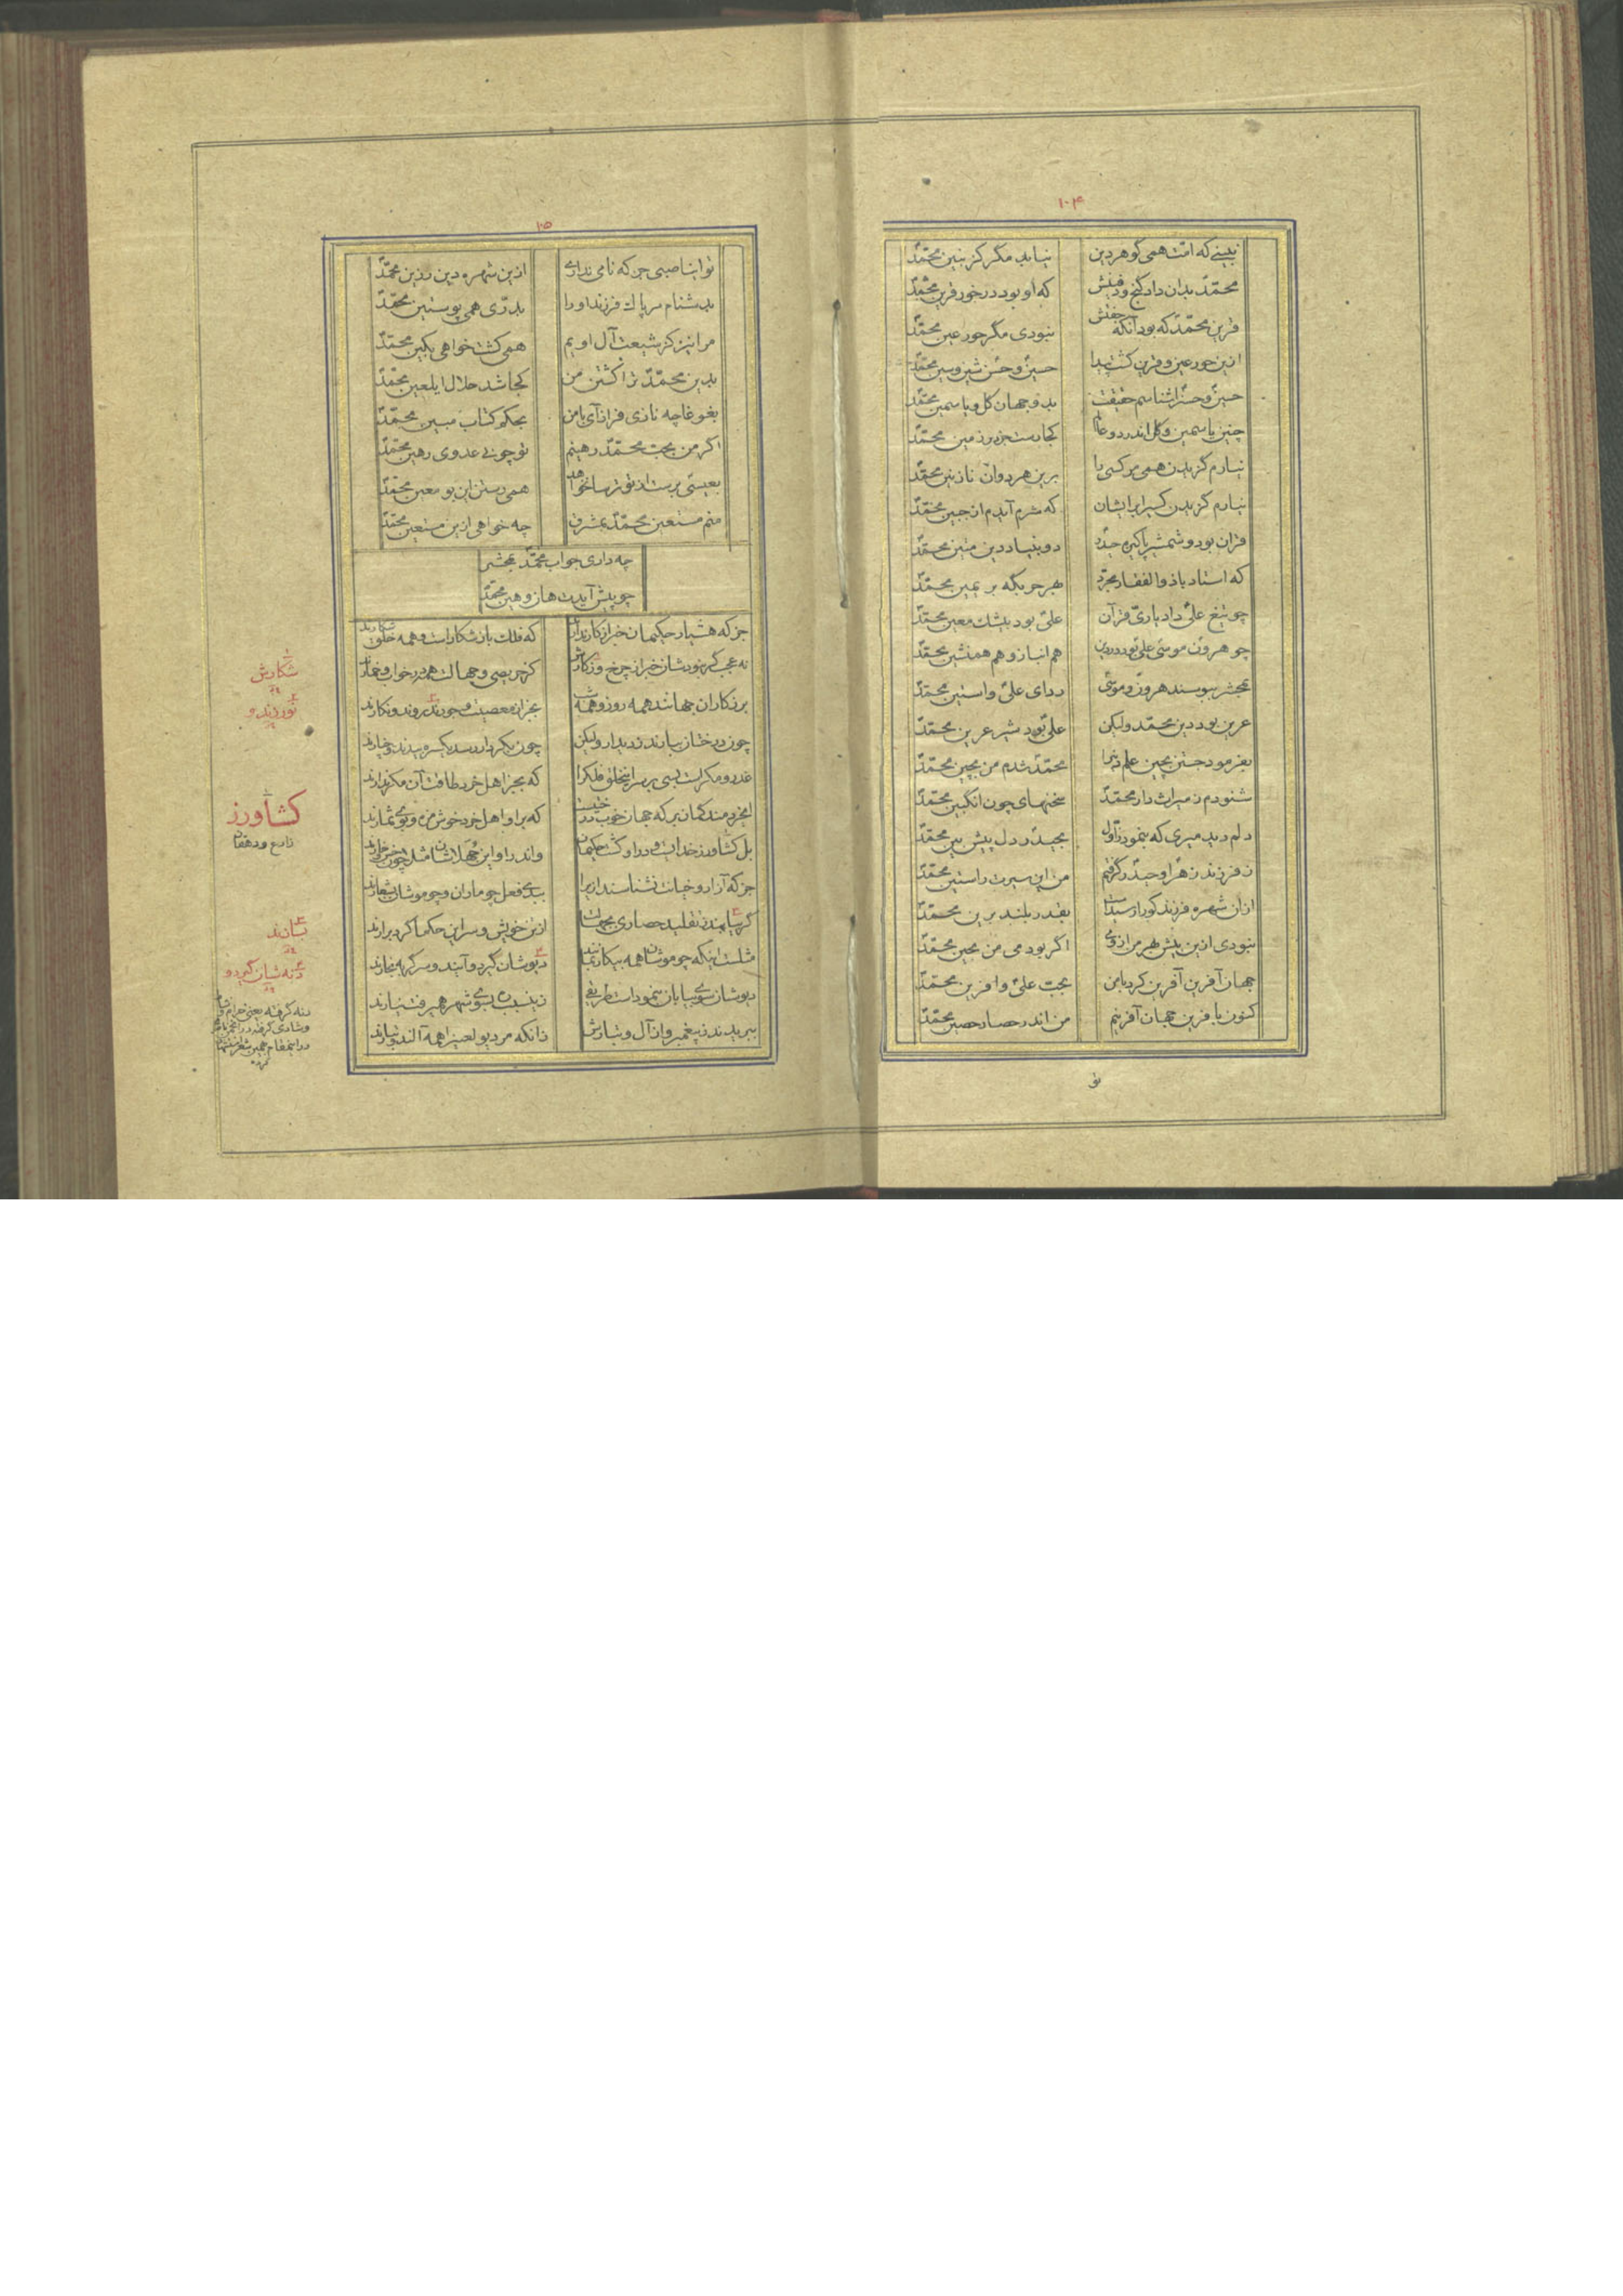 ۱۰۴
نبینی که امّت همی گوهر دین نیابد مگر کز بنین محمّد
محمّد بدان داد گنج و دفینش که او بود در خور قرین محمّد
قرین محمّد که بود آنکه جفتش نبودی مگر حور عین محمّد
ازین حور عین و قرین گشت پیدا حسین و حسن شین و سین محمّد
حسین و حسن را شناسم حقیقت بدو جهان گل و یاسمین محمّد
چنین یاسمین و گل اندر دو عالم کجا رست جز در زمین محمّد
نیارم گزیدن همی مر کسی را برین هر دوان نازنین محمّد
نیارم گزیدن کسی را بر ایشان که شرم آیدم از جبین محمّد
قران بود و شمشیر پاکیزه حیدر دو بنیاد دین متین محمّد
که استاد با ذوالفقار مجرّد بهر حربگه بر یمین محمّد
چو تیغ علی داد یاری قرآن علی بود بیشک معین محمّد
چو هرون موسی علی بود در دین هم انباز و هم همنشین محمّد
بمحشر ببوسند هرون و موسی ردای علی و آستین محمّد
عرین بود دین محمّد ولیکن علی بود شیر عرین محمّد
بفرمود جستن بچین علم دین را محمّد شدم من بچین محمّد
شنودم ز میراث دار محمّد سخنهای چون انگبین محمّد
دلم دید سری که بنمود ز اوّل بحیدر دل پیش بین محمّد
ز فرزند زهرا و حیدر گرفتم من این سیرت راستین محمّد
ازان شهره فرزند کو را رسیدست بقدر بلند برین محمّد
نبودی ازین پیش بهر مرا زوی اگر بودمی من بحین محمّد
جهان آفرین آفرین کرد بامن بحبّ علی و آفرین محمّد
کنون بافرین جهان آفرینم من اندر حصار حصین محمّد
تو
۱۰۵
تو ای ناصبی جز که نامی نداری ازین شهره دین رزین محمّد
بدشنام مر پاک فرزند او را بدرّی همی پوستین محمّد
مرا نیز کز شیعت آل اویم همی کشت خواهی بکین محمّد
بدین محمّد ترا کشتن من کجا شد حلال ای لعین محمّد
بغوغا چه نازی فراز آی بامن بحکم کتاب مبین محمّد
اگر من بحبّ محمّد رهینم تو چونی عدوی رهین محمّد
بعیسی پرست از تو ترسا نخواهد همی رستن این بو معین محمّد
منم مستعین محمّد بمشرق چه خواهی ازین مستعین محمّد
چه داری جواب محمّد بمحشر
چو پیش آیدت هان و هین محمّد
جز که هشیار حکیمان خبر از کار ندارند که فلک باز شکارست و همه خلق شکارند
نه عجب گر نبودشان خبر از چرخ و ز کارش کز حریصی و جهالت همه در خواب و خمارند
برزکاران جهانند همه روز و همه شب بجز از معصیت و جور ندروند و نکارند
چون درختان ببارند ز دیدار ولیکن چون بکردار رسد یکسره بیدند و چنارند
غدر و مکرست بسی بر سر این خلق فلک را که بجز اهل خرد طاقت آن مکر ندارند
ای خردمند گمان بر که جهان خوب درختیست که بر او اهل خرد خوش مزه و بوی ثمارند
بل کشاورز خدایست و درو کشت حکیمان واندرو این جهلاشان مثل چون خس و خارند
جز که آزار و خیانت نشناسند ازیرا ببدی فعل چو ماران و چو موشان بشعارند
گر بیابند ز تقلید حصاری بجهالت از تن خویش و سر این حکما گرد برآرند
مثلست اینکه چو موشان همه بیکار بمانند دنه شان گیرد و آیند و سر گربه بخارند
دیوشان سوی بیابان بنمودست طریقی زین سبب بسوی شهر همی رفت نیارند
ببریدند ز پیغمبر و از آل و تبارش زانکه مر دیو لعین را همه آلند و تبارند
شکارش
نورزند و
کشاورز
زارع و دهقان
بیابند
دنه شان گیرد و